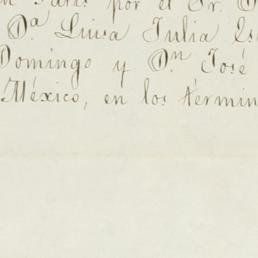 por el Sr. D
Dª Luisa Julia Es
Domingo y Dn José
México, en los términ